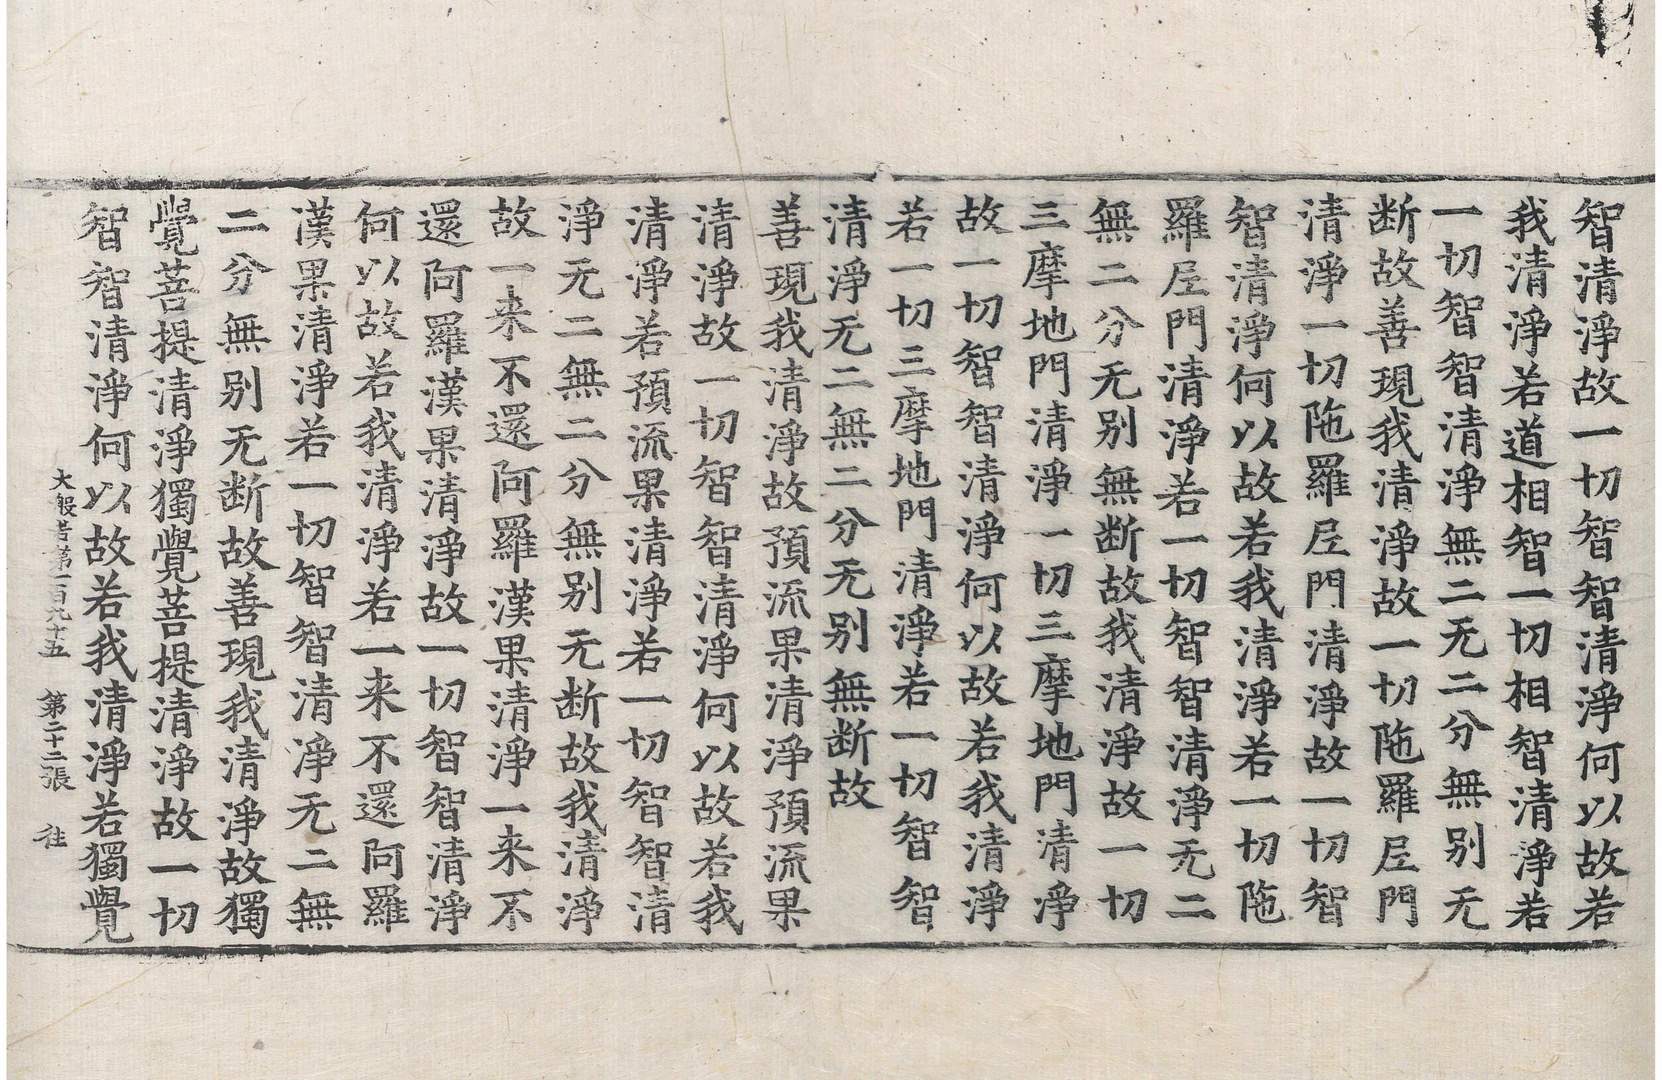 智清淨故一切智智清淨何以故若
我清淨若道相智一切相智清淨若
一切智智清淨無二无二分無别无
断故善現我清淨故一切陁羅𡰱門
清淨一切陁羅𡰱門清淨故一切智
智清淨何以故若我清淨若一切陁
羅𡰱門清淨若一切智智清淨无二
無二分无别無断故我清淨故一切
三摩地門清淨一切三摩地門清淨
故一切智智清淨何以故若我清淨
若一切三摩地門清淨若一切智智
清淨无二無二分无别無断故
善現我清淨故預流果清淨預流果
清淨故一切智智清淨何以故若我
清淨若預流果清淨若一切智智清
淨无二無二分無别无断故我清淨
故一来不還阿羅漢果清淨一来不
還阿羅漢果清淨故一切智智清淨
何以故若我清淨若一来不還阿羅
漢果清淨若一切智智清淨无二無
二分無别无断故善現我清淨故獨
覺菩提清淨獨覺菩提清淨故一切
智智清淨何以故若我清淨若獨覺
大般若第一百九十五 第二十二張 往